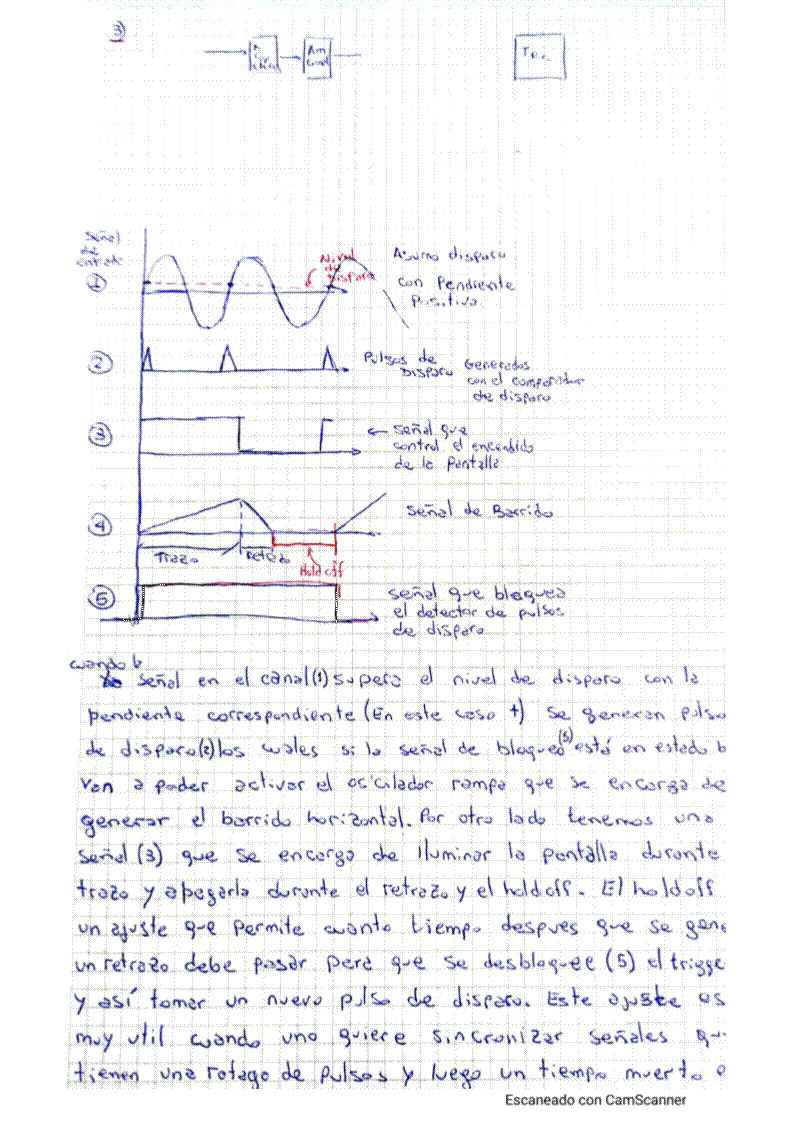 3)
Am
T.R.C.
Señal
de
①
Nivel
de
Disparo
Asumo disparo
con Pendiente
Positiva
②
Pulsos de
Disparo Generados
con el comparador
de disparo
③
← Señal que
control el encendido
de la Pantalla
④
Señal de Barrido
Trazo
Retrazo
Hold off
⑤
Señal que bloquea
el detector de pulsos
de disparo
cuando la
señal en el canal (1) supera el nivel de disparo con la
pendiente correspondiente (En este caso +) se generan pulso
de disparo (2) los cuales si la señal de bloqueo (5) está en estado b
van a poder activar el oscilador rampa que se encarga de
generar el barrido horizontal. Por otro lado tenemos una
señal (3) que se encarga de iluminar la pantalla durante
trazo y apagarla durante el retrazo y el hold off. El hold off
un ajuste que permite cuanto tiempo despues que se gene
un retrazo debe pasar para que se desbloquee (5) el trigge
y así tomar un nuevo pulso de disparo. Este ajuste es
muy util cuando uno quiere sincronizar señales qu
tienen una rafaga de pulsos y luego un tiempo muerto e
Escaneado con CamScanner